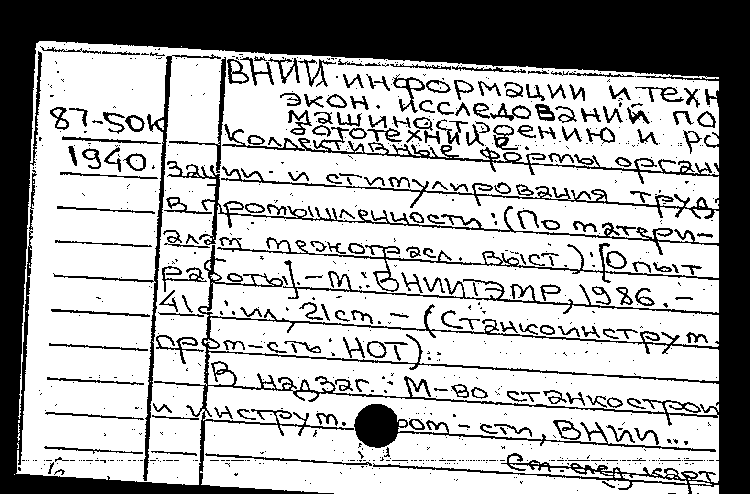 ВНИИ информации и техн
экон. исследований по
87-50К
машиностроению и ро
бототехнике
1940.
Коллективные формы органи
зации и стимулирования труда
в промышленности: (По матери-
алам межотрасл. выст.): [Опыт
работы]. - М.: ВНИИТЭМР, 1986. -
41с.: ил; 21см. - (Станкоинструм.
пром-сть: НОТ)..
В надзаг.: М-во станкострои
и инструм. пром-сти, ВНИИ...
См. след. карт